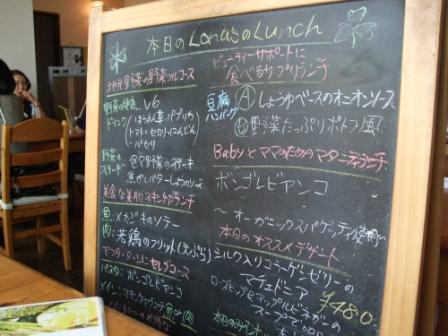 本日のLonasのLunch
地元野菜の野菜フルコース
野菜の
ドリンク
V6
ほうれん草 パプリカ
トマト セロリ にんじん
パセリ
野菜の
ステーキ
野菜のステーキ
焦がしバターしょうゆソース
美容な美肌スキンケアランチ
魚:メカジキのソテー
肉:若鶏のフリット(天ぷら)
パスタ:ボンゴレビアンコ
ビューティーサポートに
食べるサプリランチ
豆腐
ハンバーグ
Ⓐしょうゆベースのオニオンソース
Ⓑ野菜たっぷりポトフ風
Babyとママのためのマタニティランチ
ボンゴレビアンコ
~オーガニックスパゲッティ使用~
本日のオススメデザート
シルク入りコラーゲンゼリーの
マチェドニア
ローズヒップ&アップルビネガーの
スープ
¥480